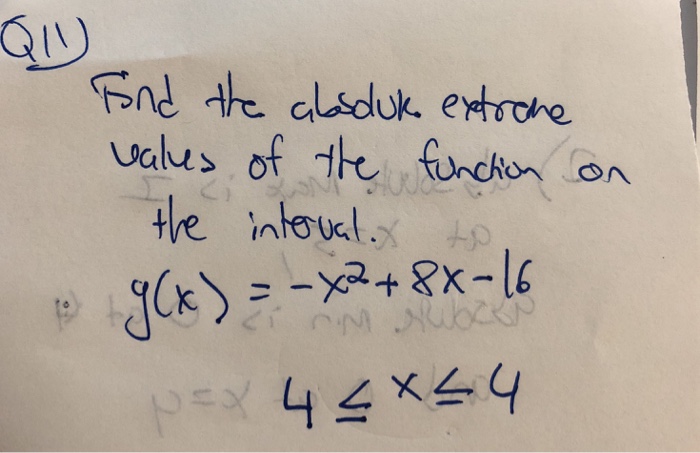 Q11)
Find the absolute extreme
values of the function on
the interval.
g(x) = -x² + 8x - 16
4 ≤ x ≤ 4